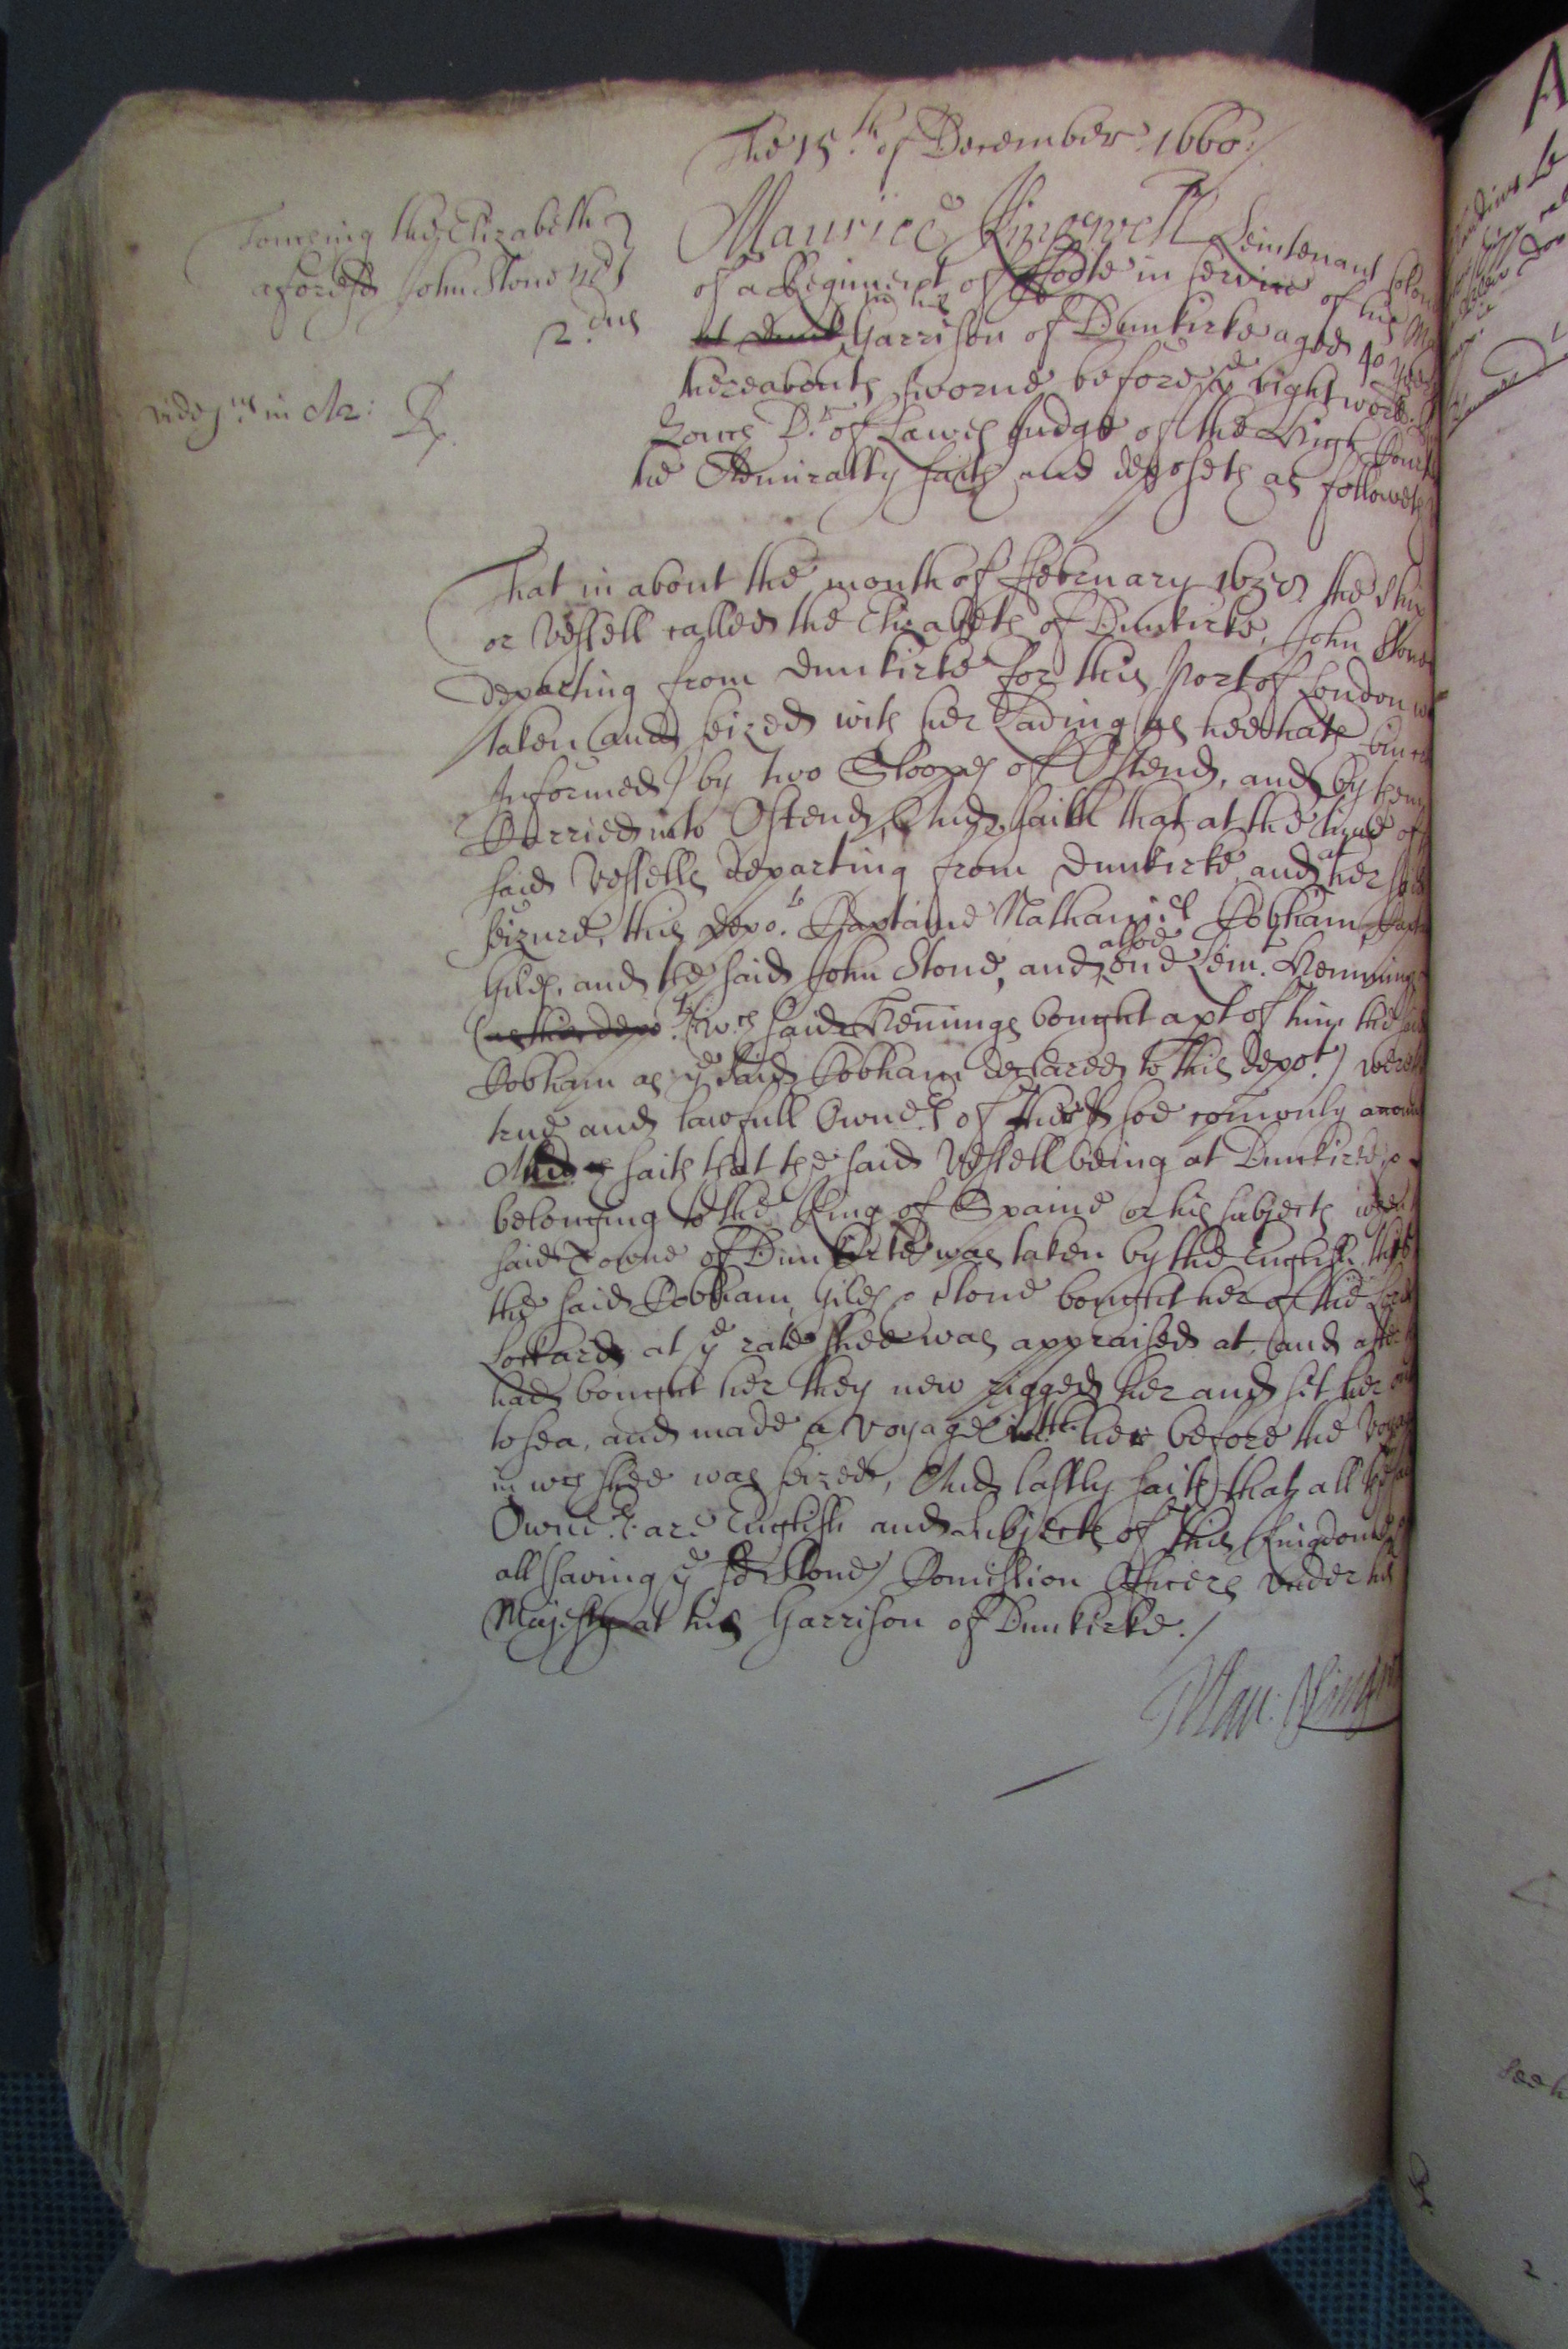 The 15.th of December 1660./
Touching the Elizabeth
aforesd John Stone Mr
2.dus
Maurice Kingwell Leiutenant Colon
of a Regiment of ffoote in service of his Ma
at Dunk in his Garrison of Dunkirke aged 40 yeeres
thereabouts sworne before ye right worll
Dr of Lawes Judge of the High Court
the Admiralty saith and deposeth as followeth
That in about the month of ffebruary 1658 the ship
or Vessell called the Elizabeth of Dunkirke, John Stone
departing from Dunkirke for this Port of London w
taken and seized with her Lading (as hee hath bin cr
Informed) by two Sloopes of Ostend, and by them
Carried into Ostend, And saith that at the time of
said Vessells departing from Dunkirke, and at her said
seizure, this depot. Captaine Nathaniel Cobham, Capt
Giles, and the said John Stone, and alsoe one Leiut. Hemmings
(as this depot. (wch said Hemings bought a pt of him the said
Cobham as ye said Cobham declared to this depot.) were
true and lawfull Owners of her soe comonly accoun
And saith that the said Vessell being at Dunkirke &
belonging to the King of Spaine or his subjects when
said Towne of Dunkirke was taken by the English,
the said Cobham, Giles & Stone bought her of the Lord
Lockard at ye rate shee was appraised at, and after
had bought her they new rigged her and set her out
to sea, and made a voyage with her before the Voyage
in wch shee was seized, And lastly saith that all the said
Owners are English and Subjects of this Kingdome
all (saving ye sd Stone) Comission Officers under his
Majesty at his Garrison of Dunkirke./
Mau: King